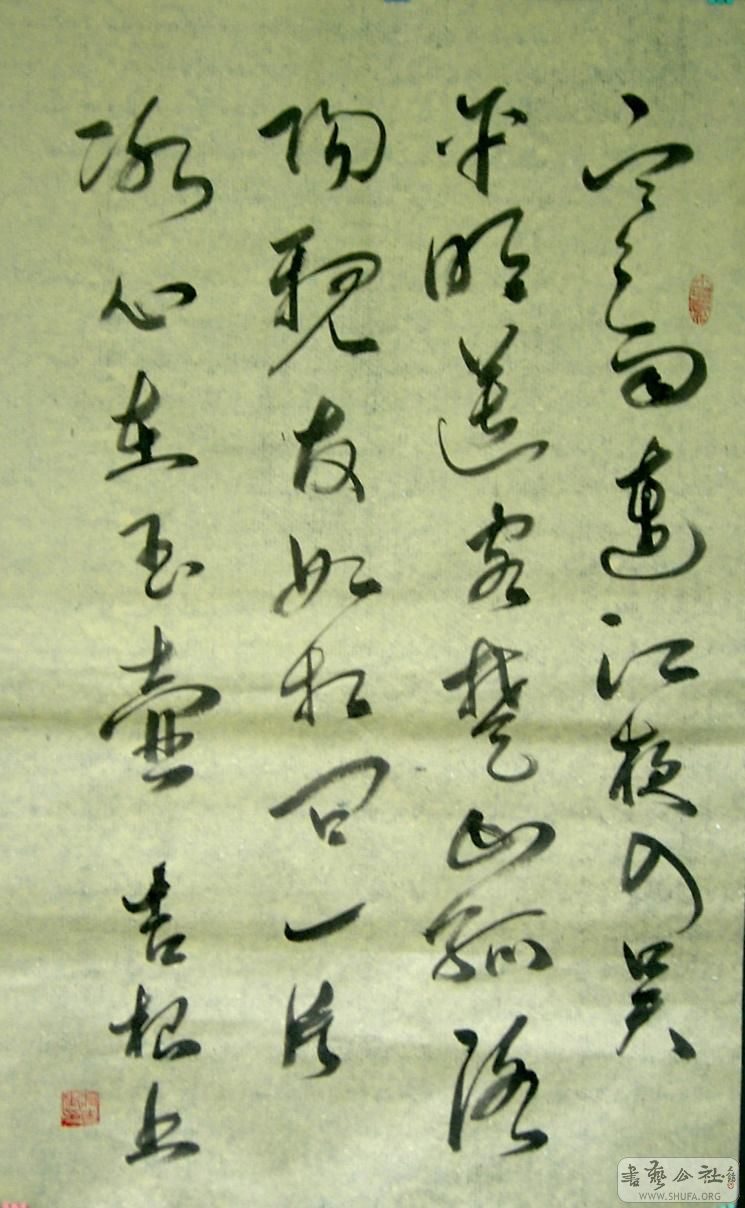 寒雨連江夜入吳
平明送客楚山孤洛
陽親友如相問一片
冰心在玉壺 根书
書藝公社
WWW.SHUFA.ORG